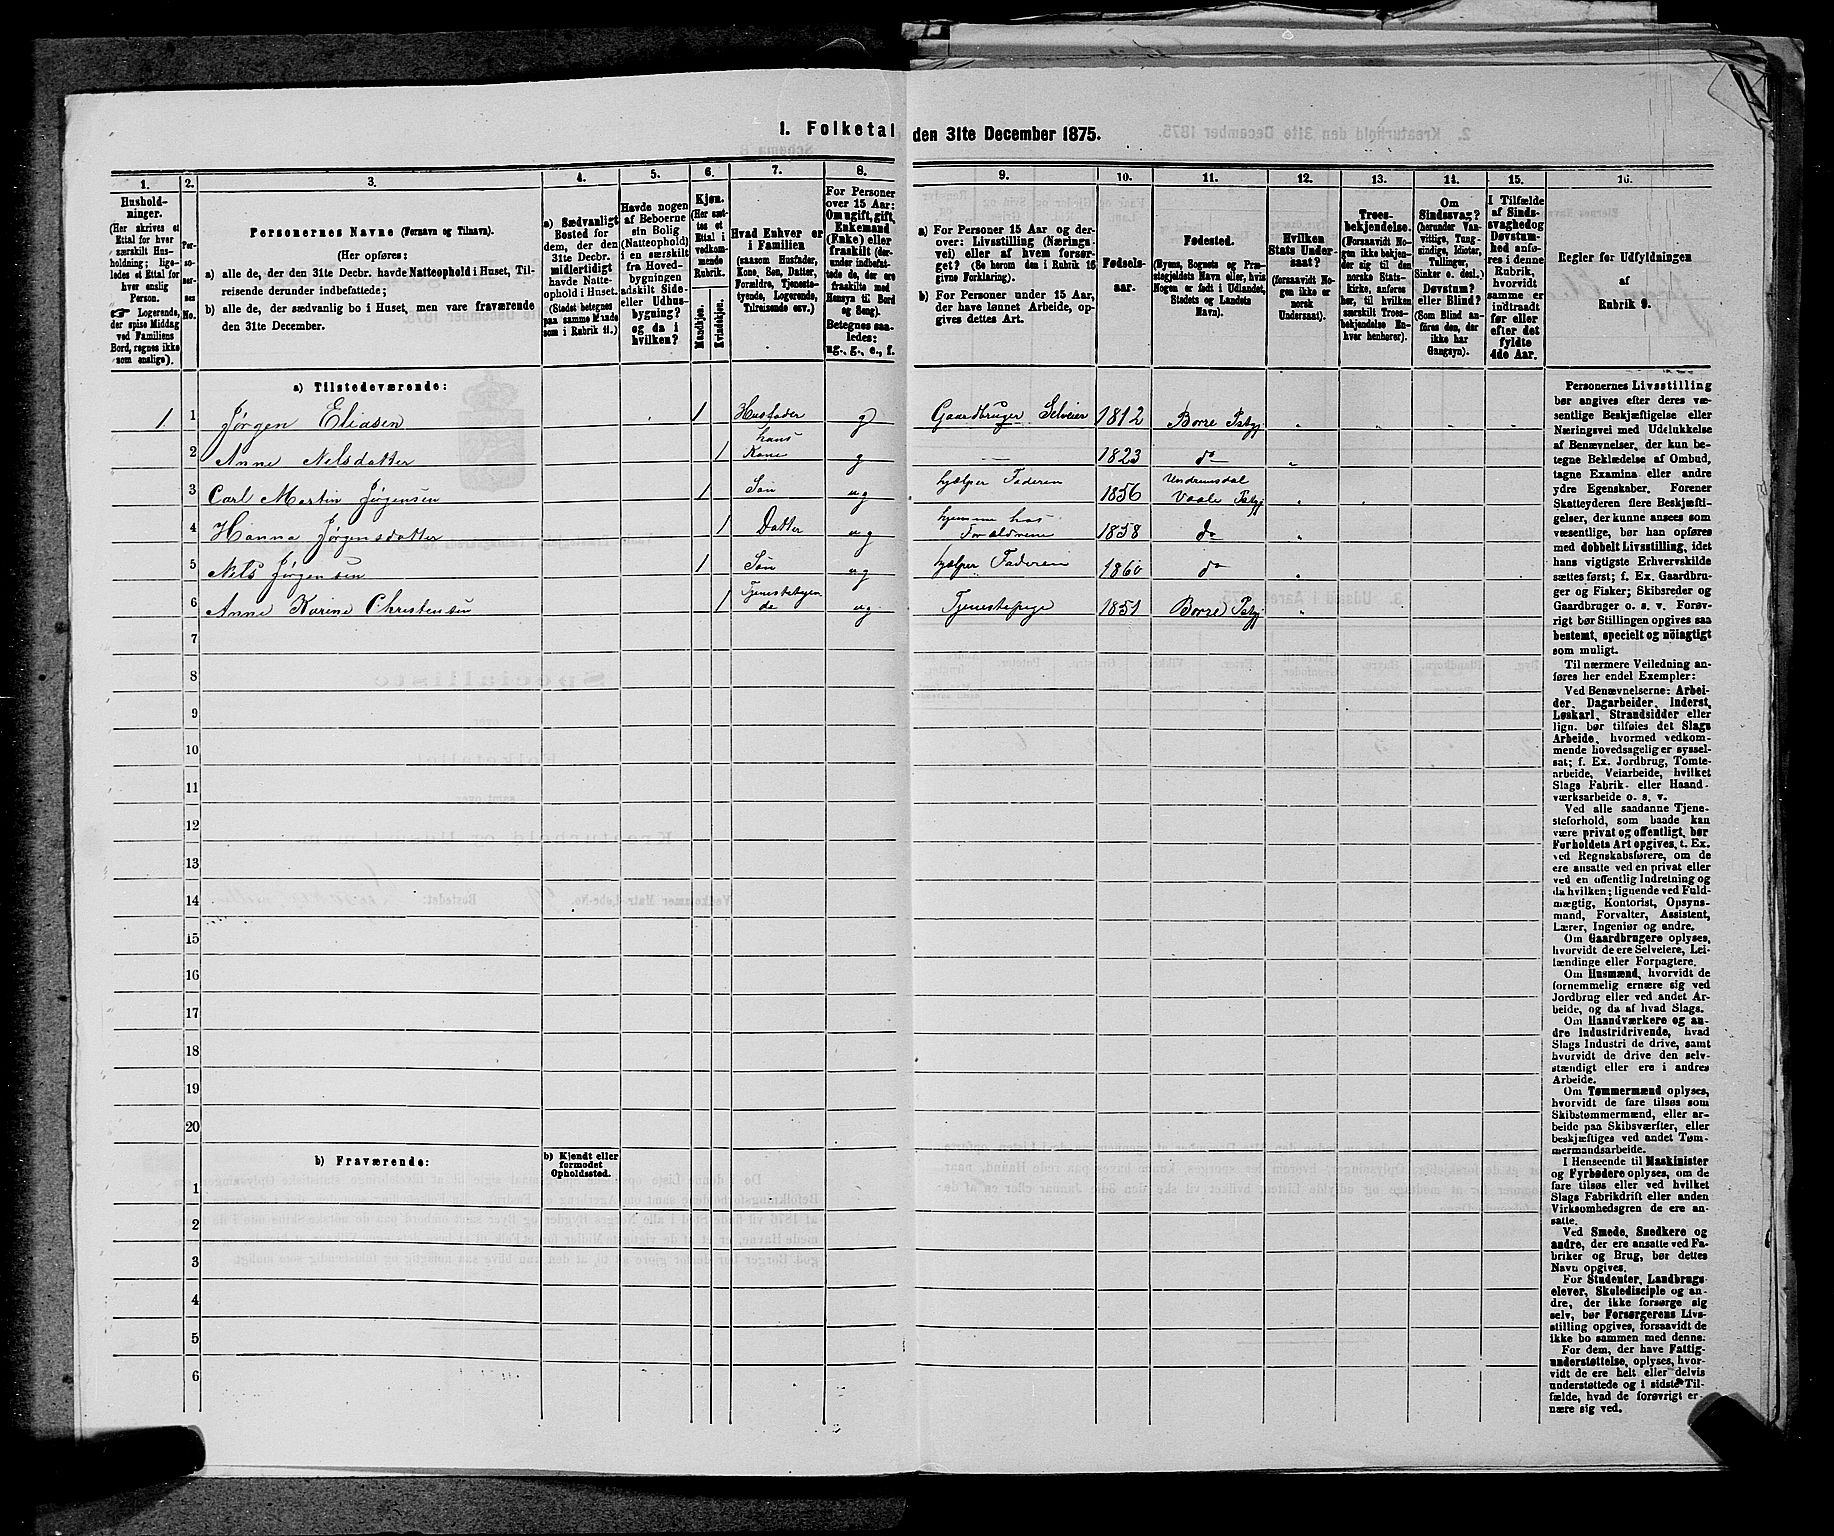 1. Folketal den 31te December 1875.
1. 2. 3. 4. 5. 6. 7. 8. 9. 10. 11. 12. 13. 14. 15. 16.
Hushold-
ninger.
(Her skrives et
Ettal for hver
særskilt Hus-
holdning; lige-
ledes et Ettal for
hver enslig
Person.
☞ Logerende,
der spise Middag
ved Familiens
Bord, regnes ikke
som enslige).
Per-
so-
ner-
nes
No.
Personernes Navne (Fornavn og Tilnavn).
(Her opføres:
a) alle de, der den 31te Decbr. havde Natteophold i Huset, Til-
reisende derunder indbefattede;
b) alle de, der sædvanlig bo i Huset, men vare fraværende
den 31te December.
a) Sædvanligt
Bosted for
dem, der den
31te Decbr.
midlertidigt
havde Natte-
ophold i Huset.
(Stedet betegnes
paa samme Maade
som i Rubrik 11.)
Havde nogen
af Beboerne
sin Bolig
(Natteophold)
i en særskilt
fra Hoved-
bygningen
adskilt Side-
eller Udhus-
bygning?
og da i
hvilken?
Kjøn.
(Her sæt-
tes et
Ettal i
vedkom-
mende
Rubrik.
Mandkjøn.
Kvindekjøn.
Hvad Enhver er
i Familien
(saasom Husfader,
Kone, Søn, Datter,
Forældre, Tjeneste-
tyende, Logerende,
Tilreisende osv.)
For Personer
over 15 Aar:
Om ugift, gift,
Enkemand
(Enke) eller
fraskilt (der-
under indbefat-
tede de, der ere
fraskilte med
Hensyn til Bord
og Seng).
Betegnes saa-
ledes:
ug., g., e., f.
a) For Personer 15 Aar og der-
over: Livsstilling (Nærings-
vei) eller af hvem forsør-
get? (Se herom den i Rubrik 16
givne Forklaring).
b) For Personer under 15 Aar,
der have lønnet Arbeide, op-
gives dettes Art.
Fødsels-
aar.
Fødested.
(Byens, Sognets og Præ-
stegjeldets Navn eller, hvis
Nogen er født i Udlandet,
Stedets og Landets
Navn).
Hvilken
Stats Under-
saat?
(forsaavidt No-
gen ikke er
norsk
Undersaat).
Troes-
bekjendelse.
(Forsaavidt No-
gen ikke bekjen-
der sig til den
norske Stats-
kirke, anføres
her, til hvilken
særskilt Troes-
bekjendelse En-
hver henhører).
Om
Sindssvag?
(herunder Van-
vittige, Tung-
sindige, Idioter,
Tullinger,
Sinker o. desl.)
Døvstum?
eller Blind?
(Som Blind an-
føres den, der
ikke har
Gangsyn).
I Tilfælde
af Sinds-
svaghed og
Døvstum-
hed anfø-
res i denne
Rubrik,
hvorvidt
samme er
indtraadt
før eller
efter det
fyldte
4de Aar.
Regler for Udfyldningen
af
Rubrik 9.
a) Tilstedeværende:
1 1 Jørgen Eliasen 1 Husfader g Gaardbruger Selveier 1812 Borre Pstgj "
2 Anne Nelsdatter 1 hans Kone g — 1823 do "
3 Carl Martin Jørgensen 1 Søn ug hjælper Faderen 1856 Undrumsdal Vaale Pstgj "
4 Hanna Jørgensdatter 1 Datter ug hjemme hos Forældrene 1858 do "
5 Nels Jørgensen 1 Søn ug hjælper Faderen 1860 do
6 Anne Karine Christensen 1 Tjenestetyende ug Tjenestepige 1851 Borre Pstgj "
7
8
9
10
11
12
13
14
15
16
17
18
19
20
b) Fraværende:
b) Kjendt eller
formodet
Opholdssted.
1
2
3
4
5
6
Personernes Livsstilling
bør angives efter deres væ-
sentlige Beskjæftigelse eller
Næringsvei med Udelukkelse
af Benævnelser, der kun be-
tegne Beklædelse af Ombud,
tagne Examina eller andre
ydre Egenskaber. Forener
Skatteyderen flere Beskjæfti-
gelser, der kunne ansees som
væsentlige, bør han opføres
med dobbelt Livsstilling, idet
hans vigtigste Erhvervskilde
sættes først; f. Ex. Gaardbru-
ger og Fisker; Skibsreder og
Gaardbruger o. s. v. Forøv-
rigt bør Stillingen opgives saa
bestemt, specielt og nøiagtigt
som muligt.
Til nærmere Veiledning an-
føres her endel Exempler:
Ved Benævnelserne: Arbei-
der, Dagarbeider, Inderst,
Løskarl, Strandsidder eller
lign. bør tilføies det Slags
Arbeide, hvormed vedkom-
mende hovedsagelig er syssel-
sat; f. Ex. Jordbrug, Tomte-
arbeide, Veiarbeide, hvilket
Slags Fabrik- eller Haand-
værksarbeide o. s. v.
Ved alle saadanne Tjene-
steforhold, som baade kan
være privat og offentligt, bør
Forholdets Art opgives, t. Ex.
ved Regnskabsførere, om de
ere ansatte ved en privat eller
ved en offentlig Indretning og
da hvilken; lignende ved Fuld-
mægtig, Kontorist, Opsyns-
mand, Forvalter, Assistent,
Lærer, Ingeniør og andre.
Om Gaardbrugere oplyses,
hvorvidt de ere Selveiere, Lei-
lændinge eller Forpagtere.
Om Husmænd, hvorvidt de
fornemmelig ernære sig ved
Jordbrug eller ved andet Ar-
beide, og da af hvad Slags.
Om Haandværkere og an-
dre Industridrivende, hvad
Slags Industri de drive, samt
hvorvidt de drive den selv-
stændigt eller ere i andres
Arbeide.
Om Tømmermænd oplyses,
hvorvidt de fare tilsøs som
Skibstømmermænd, eller ar-
beide paa Skibsværfter, eller
beskjæftiges ved andet Tøm-
mermandsarbeide.
I Henseende til Maskinister
og Fyrbødere oplyses, om de
fare tilsøs eller ved hvilket
Slags Fabrikdrift eller anden
Virksomhedsgren de ere an-
satte.
Ved Smede, Snedkere og
andre, der ere ansatte ved Fa-
briker og Brug, bør dettes
Navn opgives.
For Studenter, Landbrugs-
elever, Skoledisciple og an-
dre, der ikke forsørge sig
selv, bør Forsørgerens Livs-
stilling opgives, forsaavidt de
ikke bo sammen med denne.
For dem, der have Fattig-
understøttelse, oplyses, hvor-
vidt de ere helt eller delvis
understøttede og i sidste Til-
fælde, hvad de forøvrigt er-
nære sig ved.